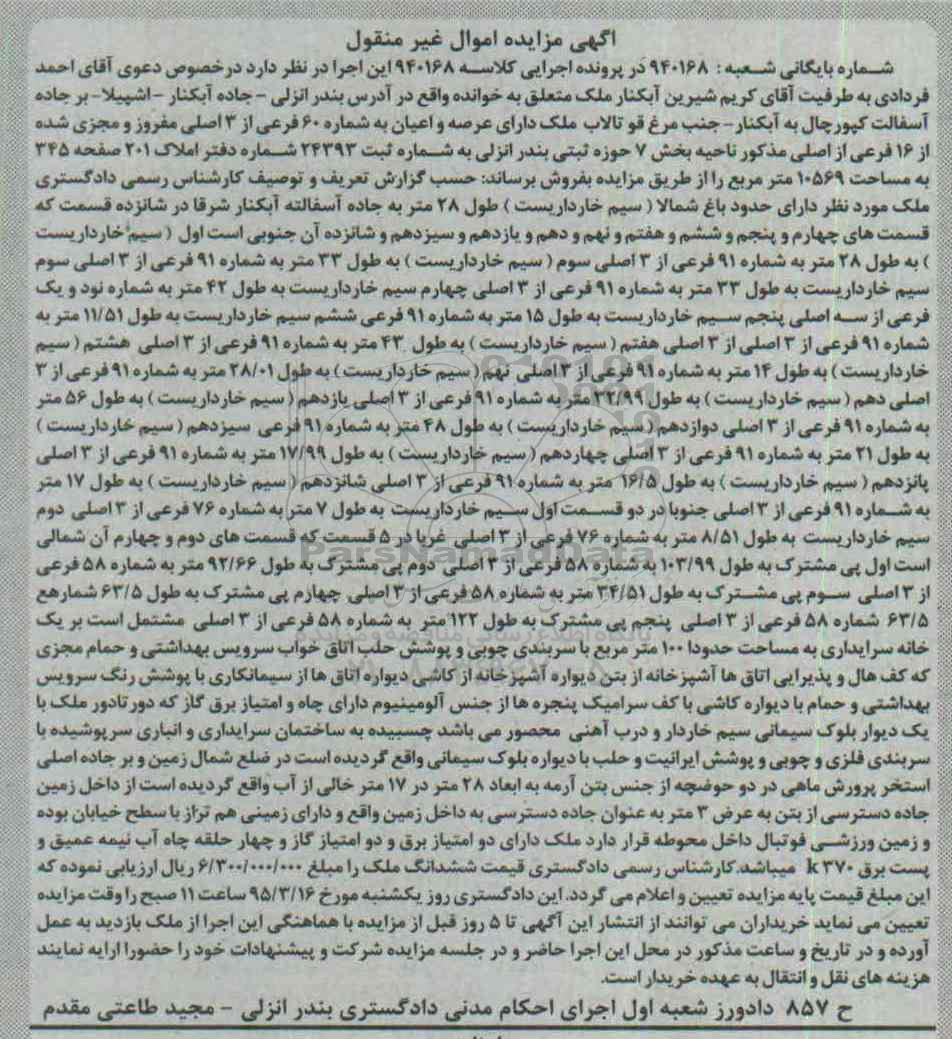 آگهی مزایده اموال غیر منقول
شماره بایگانی شعبه : ۹۴۰۱۶۸ در پرونده اجرایی کلاسه ۹۴۰۱۶۸ این اجرا در نظر دارد درخصوص دعوی آقای احمد
فردادی به طرفیت آقای کریم شیرین آبکنار ملک متعلق به خوانده واقع در آدرس بندر انزلی - جاده آبکنار - اشپیلا- بر جاده
آسفالت کپورچال به آبکنار- جنب مرغ قو تالاب ملک دارای عرصه و اعیان به شماره ۶۰ فرعی از ۳ اصلی مفروز و مجزی شده
از ۱۶ فرعی از اصلی مذکور ناحیه بخش ۷ حوزه ثبتی بندر انزلی به شماره ثبت ۲۴۳۹۳ شماره دفتر املاک ۲۰۱ صفحه ۳۴۵
به مساحت ۱۰۵۶۹ متر مربع را از طریق مزایده بفروش برساند: حسب گزارش تعریف و توصیف کارشناس رسمی دادگستری
ملک مورد نظر دارای حدود باغ شمالا ( سیم خارداریست ) طول ۲۸ متر به جاده آسفالته آبکنار شرقا در شانزده قسمت که
قسمت های چهارم و پنجم و ششم و هفتم و نهم و دهم و یازدهم و سیزدهم و شانزده آن جنوبی است اول ( سیم خارداریست
) به طول ۲۸ متر به شماره ۹۱ فرعی از ۳ اصلی سوم ( سیم خارداریست ) به طول ۳۳ متر به شماره ۹۱ فرعی از ۳ اصلی سوم
سیم خارداریست به طول ۳۳ متر به شماره ۹۱ فرعی از ۳ اصلی چهارم سیم خارداریست به طول ۴۲ متر به شماره نود و یک
فرعی از سه اصلی پنجم سیم خارداریست به طول ۱۵ متر به شماره ۹۱ فرعی ششم سیم خارداریست به طول ۱۱/۵۱ متر به
شماره ۹۱ فرعی از ۳ اصلی از ۳ اصلی هفتم ( سیم خارداریست ) به طول ۴۳ متر به شماره ۹۱ فرعی از ۳ اصلی هشتم ( سیم
خارداریست ) به طول ۱۴ متر به شماره ۹۱ فرعی از ۳ اصلی نهم ( سیم خارداریست ) به طول ۲۸/۰۱ متر به شماره ۹۱ فرعی از ۳
اصلی دهم ( سیم خارداریست ) به طول ۲۲/۹۹ متر به شماره ۹۱ فرعی از ۳ اصلی یازدهم ( سیم خارداریست ) به طول ۵۶ متر
به شماره ۹۱ فرعی از ۳ اصلی دوازدهم ( سیم خارداریست ) به طول ۴۸ متر به شماره ۹۱ فرعی سیزدهم ( سیم خارداریست )
به طول ۲۱ متر به شماره ۹۱ فرعی از ۳ اصلی چهاردهم ( سیم خارداریست ) به طول ۱۷/۹۹ متر به شماره ۹۱ فرعی از ۳ اصلی
پانزدهم ( سیم خارداریست ) به طول ۱۶/۵ متر به شماره ۹۱ فرعی از ۳ اصلی شانزدهم ( سیم خارداریست ) به طول ۱۷ متر
به شماره ۹۱ فرعی از ۳ اصلی جنوبا در دو قسمت اول سیم خارداریست به طول ۷ متر به شماره ۷۶ فرعی از ۳ اصلی دوم
سیم خارداریست به طول ۸/۵۱ متر به شماره ۷۶ فرعی از ۳ اصلی غربا در ۵ قسمت که قسمت های دوم و چهارم آن شمالی
است اول پی مشترک به طول ۱۰۳/۹۹ به شماره ۵۸ فرعی از ۳ اصلی دوم پی مشترک به طول ۹۲/۶۶ متر به شماره ۵۸ فرعی
از ۳ اصلی سوم پی مشترک به طول ۳۴/۵۱ متر به شماره ۵۸ فرعی از ۳ اصلی چهارم پی مشترک به طول ۶۳/۵ شمارهع
۶۳/۵ شماره ۵۸ فرعی از ۳ اصلی پنجم پی مشترک به طول ۱۲۲ متر به شماره ۵۸ فرعی از ۳ اصلی مشتمل است بر یک
خانه سرایداری به مساحت حدودا ۱۰۰ متر مربع با سربندی چوبی و پوشش حلب اتاق خواب سرویس بهداشتی و حمام مجزی
که کف هال و پذیرایی اتاق ها آشپزخانه از بتن دیواره آشپزخانه از کاشی دیواره اتاق ها از سیمانکاری با پوشش رنگ سرویس
بهداشتی و حمام با دیواره کاشی با کف سرامیک پنجره ها از جنس آلومینیوم دارای چاه و امتیاز برق گاز که دور تادور ملک با
یک دیوار بلوک سیمانی سیم خاردار و درب آهنی محصور می باشد چسبیده به ساختمان سرایداری و انباری سرپوشیده با
سربندی فلزی و چوبی و پوشش ایرانیت و حلب با دیواره بلوک سیمانی واقع گردیده است در ضلع شمال زمین و بر جاده اصلی
استخر پرورش ماهی در دو حوضچه از جنس بتن آرمه به ابعاد ۲۸ متر در ۱۷ متر خالی از آب واقع گردیده است از داخل زمین
جاده دسترسی از بتن به عرض ۳ متر به عنوان جاده دسترسی به داخل زمین واقع و دارای زمینی هم تراز با سطح خیابان بوده
و زمین ورزشی فوتبال داخل محوطه قرار دارد ملک دارای دو امتیاز برق و دو امتیاز گاز و چهار حلقه چاه آب نیمه عمیق و
پست برق k ۳۷۰ میباشد.کارشناس رسمی دادگستری قیمت ششدانگ ملک را مبلغ ۶/۳۰۰/۰۰۰/۰۰۰ ریال ارزیابی نموده که
این مبلغ قیمت پایه مزایده تعیین و اعلام می گردد. این دادگستری روز یکشنبه مورخ ۹۵/۳/۱۶ ساعت ۱۱ صبح را وقت مزایده
تعیین می نماید خریداران می توانند از انتشار این آگهی تا ۵ روز قبل از مزایده با هماهنگی این اجرا از ملک بازدید به عمل
آورده و در تاریخ و ساعت مذکور در محل این اجرا حاضر و در جلسه مزایده شرکت و پیشنهادات خود را حضورا ارایه نمایند
هزینه های نقل و انتقال به عهده خریدار است.
ح ۸۵۷ دادورز شعبه اول اجرای احکام مدنی دادگستری بندر انزلی - مجید طاعتی مقدم
ParsNamadData
پایگاه اطلاع رسانی مناقصه و مزایده